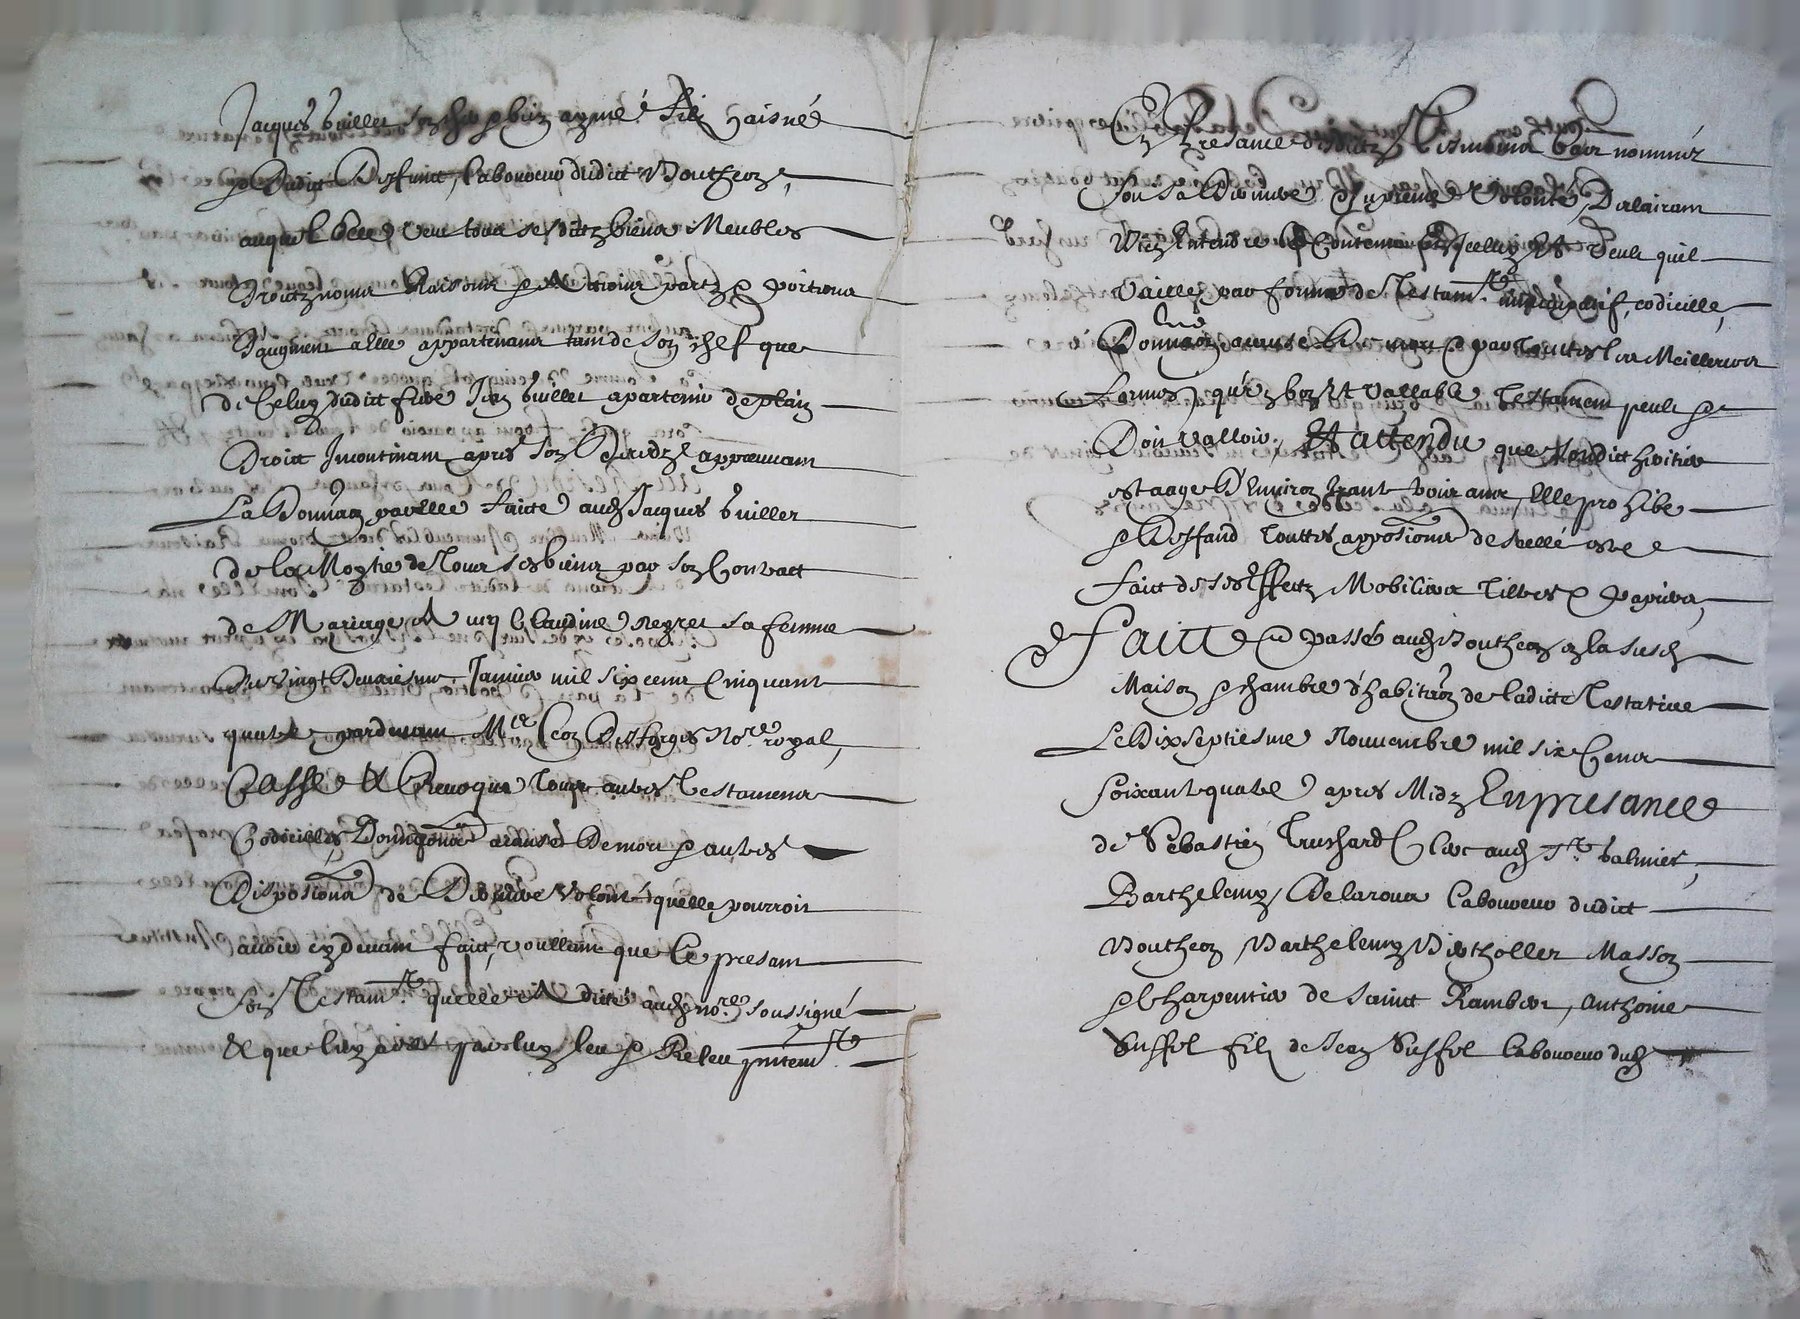 Jacques buillet son cher & bien aymé filz aisné
& dudit deffunct, laboureur dudict Boutheon,
auquel elle veut tous sesditz biens Meubles
droictz noms Raisons & actions partz & portions
daugment a elle appartenans tant de son chef que
de Celuy dudict feu Jean buillet apartenir de plain
droict Incontinant apres son deceds & approuvant
La donnaon par elle faicte audit Jacques buillet
de la Moytie de Tous ses biens par son Contract
de Mariage avecq Claudine Negret sa femme
du vingt deuxiesme Janvier mil six cent Cinquant
quatre pardevant Mre Leon Desforges Nore royal,
Casse & Revoque Tous autres Testamens
Codicilles Donnaons a cause de mort & autres
dispositions de derniere volonté quelle pourroit
avoir cy devant faict, voullant que le presant
son Testamt. quelle a dicté audit nore. soussigné
& que luy a esté par luy leu & Releu
En Presance desditz Tesmoins bas nommés
soit sa derniere & supreme volonté, Declairant
bien Entendre le Contenu en Iceluy & veult quil
vaille par forme de Testamt. nuncupatif, codicille,
Donnaon a cause de mort & par Touttes les Meilleures
formes, qu'un bon & vallable Testament peult &
Doit valloir, Et attendu que sondict heritier
est aage d'Environ trant huit ans, Elle prohibe
& deffend Touttes appositions de scellé estre
faict de ses Effectz Mobiliers Tiltres & papiers,
Faict & passé audit Boutheon en la susd.
Maison & chambre d'habitaon de ladicte Testatrice
Le Dix septiesme Novembre mil six Cens
soixant quatre apres Midy En presance
de Sebastien Trushard Clerc audit St. Galmier,
Barthelemy Delaroua laboureur dudict
Boutheon, Barthelemy Bertholler Masson
& Charpentier de Sainct Rambert, Anthoine
Suffel filz de Jean Suffel laboureur dud.